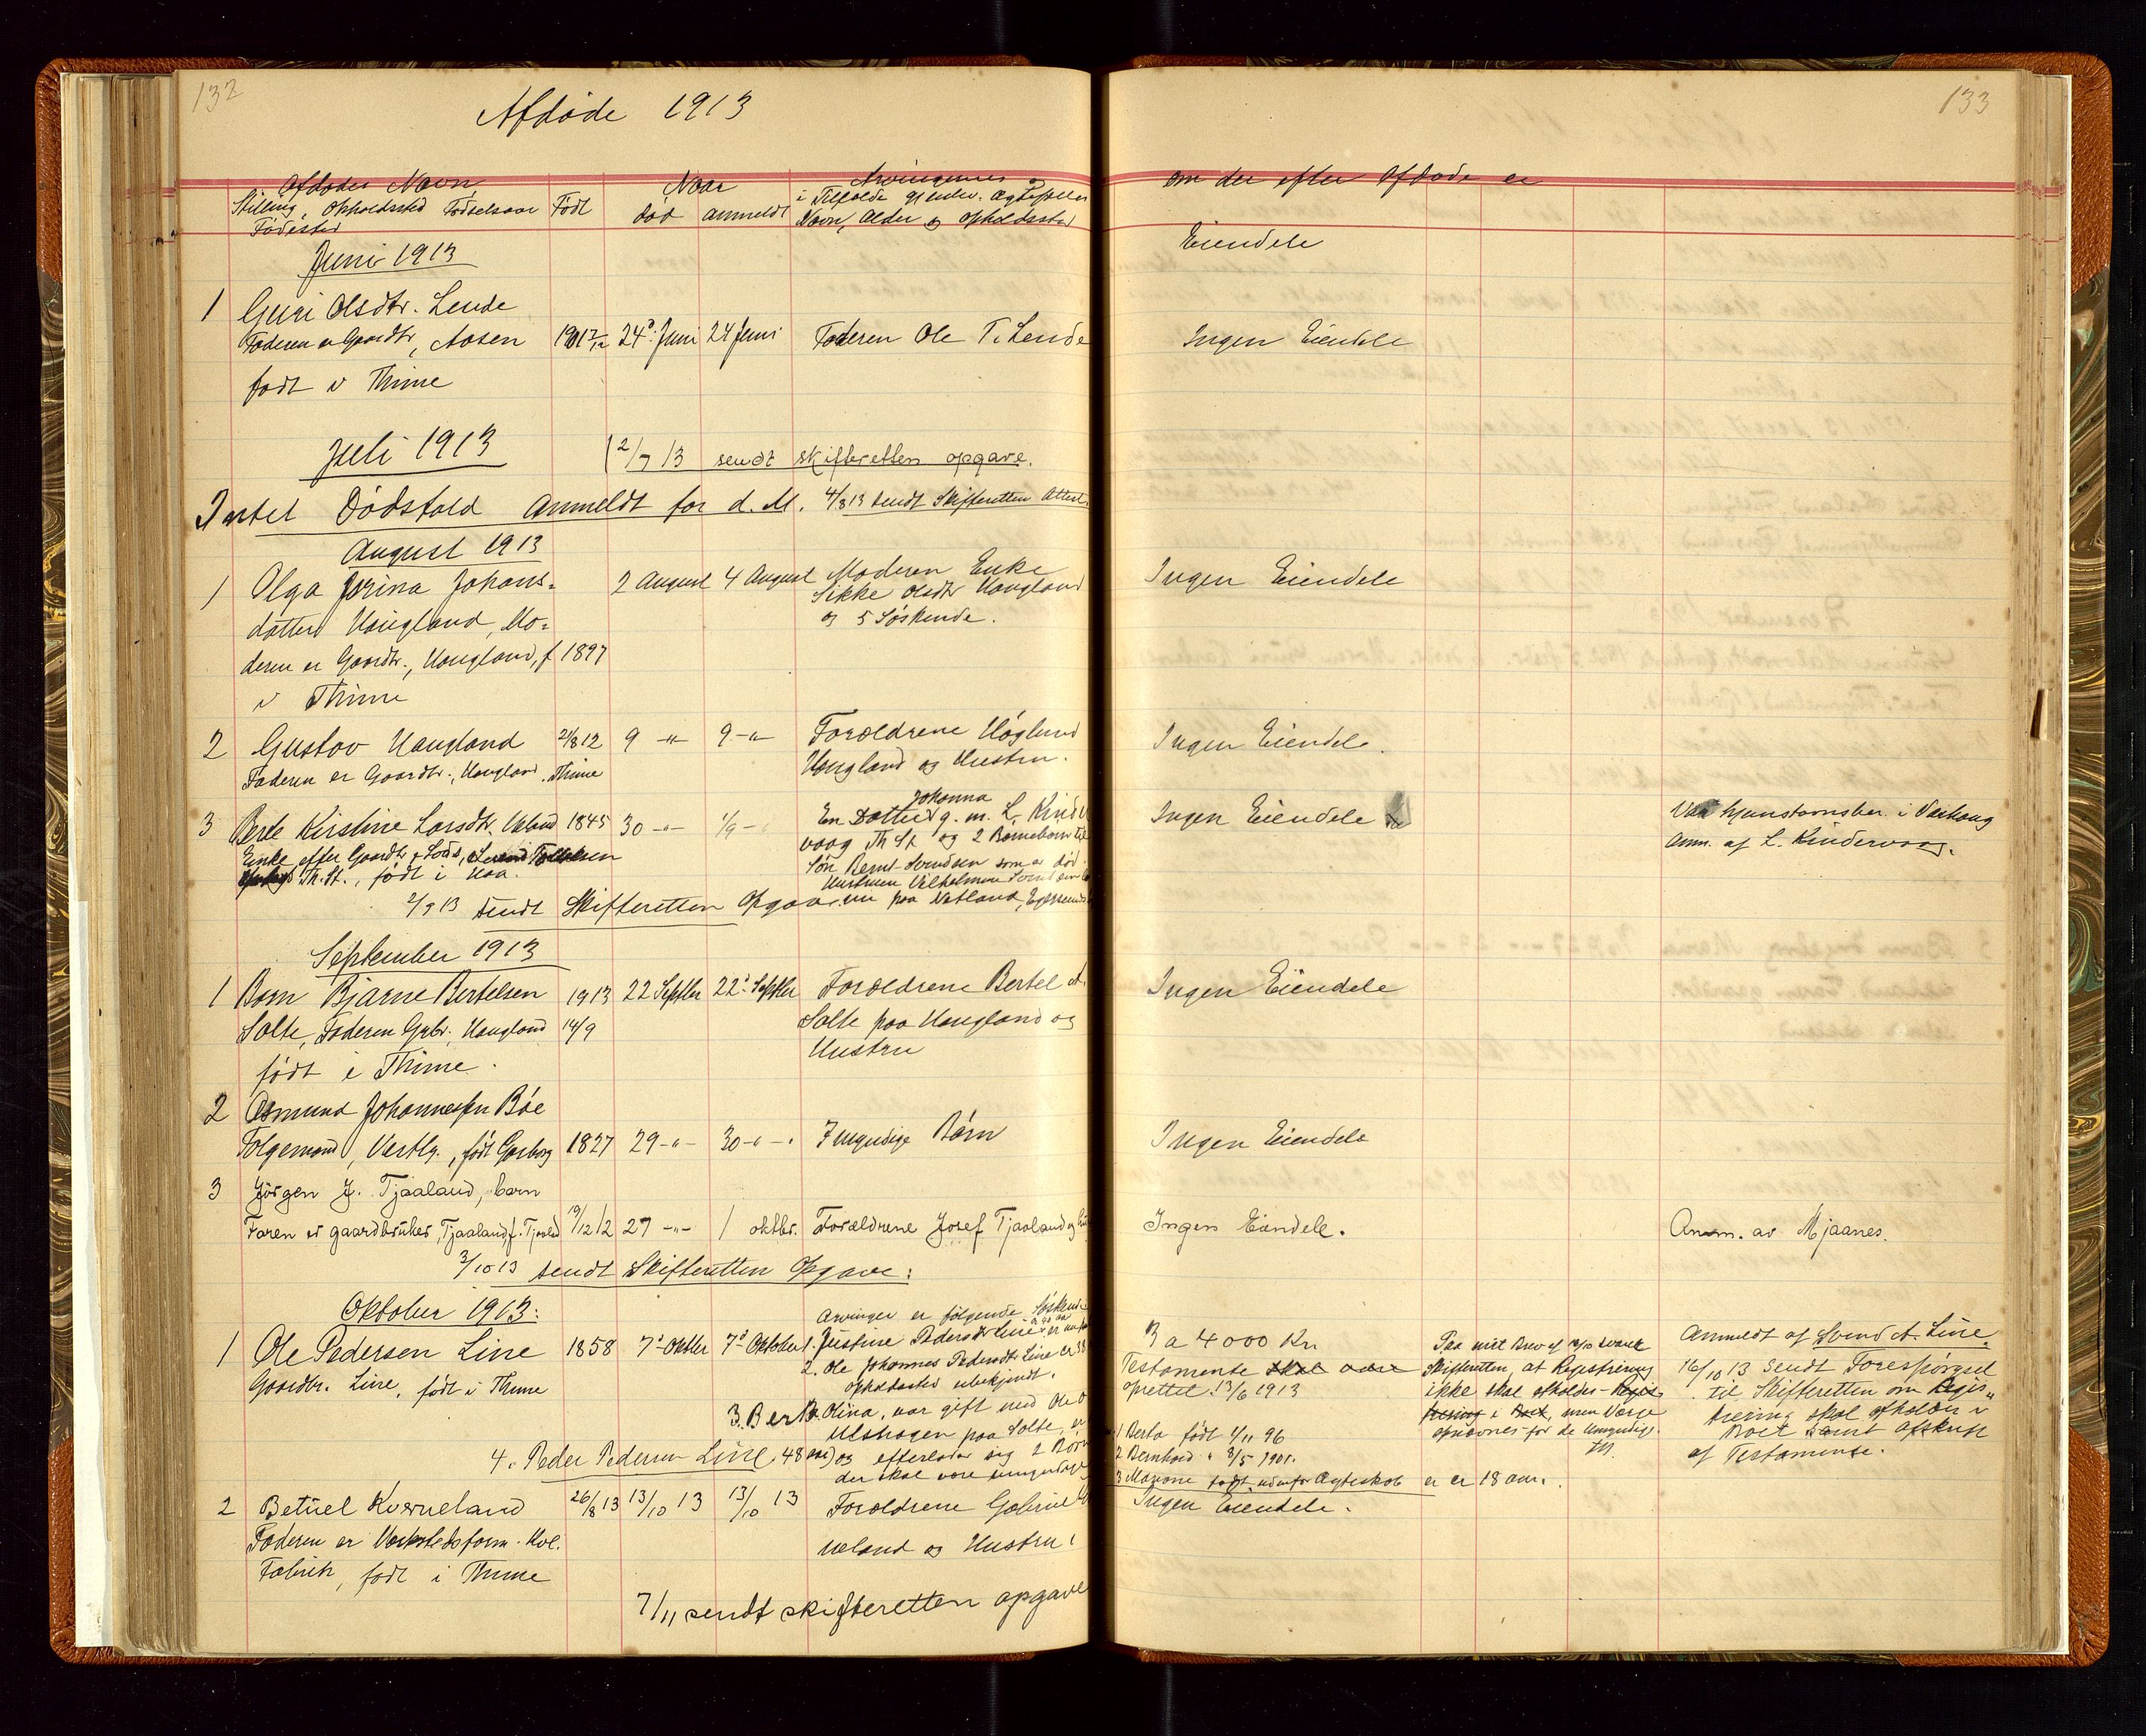 132
Afdøde 1913
Afdødes Navn,
Stilling, Opholdssted Fødselsaar
Fødested
Født
Naar
død anmeldt
Arvingernes
i Tilfælde
Navn, Alder og opholdssted
Juni 1913
1 Guri Olsdtr. Lende
Faderen er Gaardbr, Aasen 24de Juni 24 Juni Faderen Ole T. Lende
født i Thime
Juli 1913
(2/7 13 sendt skifteretten opgave.
Intet Dødsfald Anmeldt for d. M. 4/8 13 sendt Skifteretten Attest
August 1913
1 Olga Jorina Johans= 2 August 4 August Moderen Enke
Sikke Olsdtr Haugland
datter Haugland, Mo= og 5 Søskende.
deren er Gaardbr., Haugland, f 1897
i Thime
2 Gustav Haugland 21/8 12 9 -"- 9 -"- Forældrene Høglund
Faderen er Gaardbr., Haugland, Thime Haugland og Hustru.
3 Berte Kirstine Larsdtr. Ueland 1845 30 -"- 1/9 -"- En Datter Johanna g. m. L. Kinder
Enke efter Gaardbr vaag Th St og 2 Børnebørn
Th. St., født i Haa. Søn Bernt Svendsen som er død
Hustruen Vilhelmine
2/9 13 sendt Skifteretten Opgave. paa Netland, Egersund
September 1913
1 Barn Bjarne Bertelsen 1913 22 Septbr 22de Septbr Forældrene Bertel A.
Salte, Faderen Grbr. Haugland 14/9 Salte paa Haugland og
født i Thime. Hustru
2 Osmund Johannessen Bøe
Folgemand, Vestly, født Garborg 1827 29 -"- 30 -"- 7 myndige Børn
3 Jørgen J. Tjaaland, barn
Faren er gaardbruker, Tjaaland, f. Tjaaland 19/12 12 29 -"- 1 oktbr. Forældrene Josef Tjaaland og
3/10 13 sendt Skifteretten Opgave:
Oktober 1913:
Arvinger er følgende Søskende
1 Ole Pedersen Line 1858 7de Oktbr 7de Oktober 1. Justine Pedersdtr Line
Gaardbr. Line, født i Thime 2. Ole Johannes Pedersdtr. Line er
opholdssted ubekjendt.
3. Berta Olina, var gift med Ole O
Ulshagen paa Salte, er
4. Peder Pedersen Line 48 aar og efterlader sig 2 Børn
der skal være umyndige
2 Betuel Kverneland 26/8 13 13/10 13 13/10 13 Forældrene Gabriel
Faderen er Verkstedsform. Kvl. Ueland og Hustru
Fabrik, født i Thime
7/11 sendt skifteretten opgave
133
om der efter Afdøde er
Eiendele
Ingen Eiendele
Ingen Eiendele
Ingen Eiendele.
Ingen Eiendele
i Varhaug
Anm. af L. Kindervaag.
Ingen Eiendele
Ingen Eiendele
Ingen Eiendele.
Anm. av Mjaanes.
3 a 4000 Kr.
Testamente skal være
oprettet 13/6 1913
1 Berta født 4/11 96
2 Bernhard " 3/5 1901.
3 Marione født udenfor Ægteskab er 18 aar.
Paa mit Brev af 16/10 svarer
Skifteretten, at Registrering
ikke skal afholdes - Regis
trering i Boet, men Værge
opnævnes for de Umyndige.
Anmeldt af Svend A. Line.
16/10 13 sendt Forespørgsel
til Skifteretten om Regis
trering skal afholdes i
Boet samt Afskrift
af Testamente.
Ingen Eiendele.